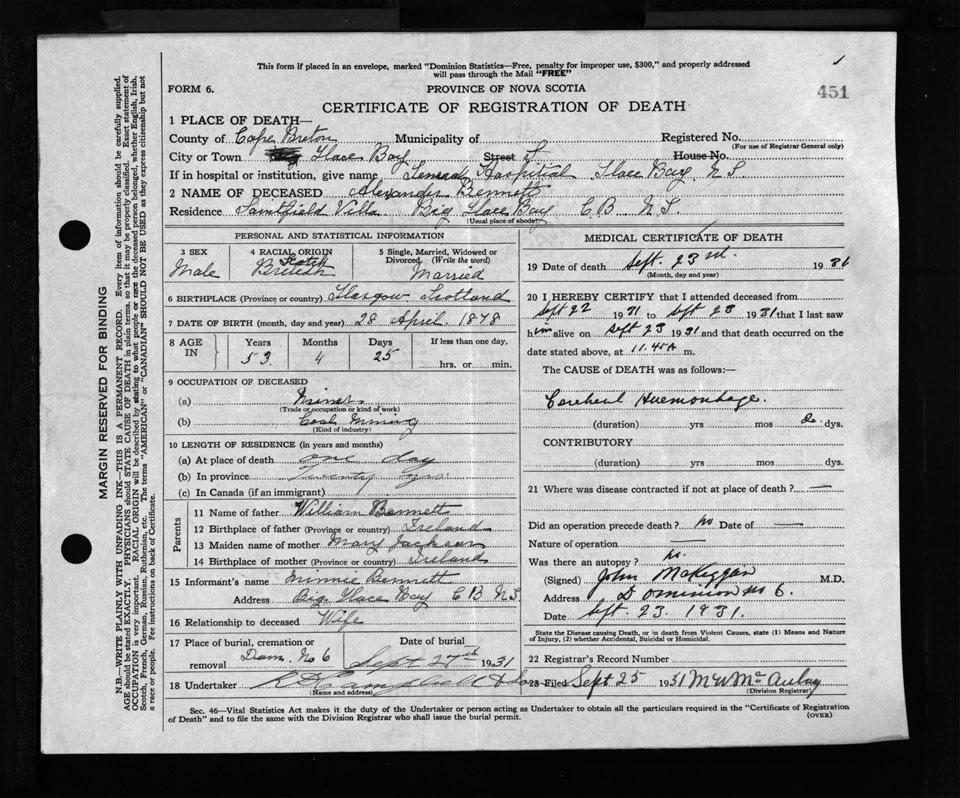 This form if placed in an envelope, marked "Dominion Statistics—Free, penalty for improper use, $300," and properly addressed
will pass through the Mail "FREE"
FORM 6.
PROVINCE OF NOVA SCOTIA
451
CERTIFICATE OF REGISTRATION OF DEATH
1 PLACE OF DEATH—
County of Cape Breton Municipality of Registered No.
(For use of Registrar General only)
City or Town Glace Bay Street House No.
If in hospital or institution, give name General Hospital Glace Bay N S.
2 NAME OF DECEASED Alexander Bennett
Residence Saintfield Villa Big Glace Bay C B N S.
(Usual place of abode)
PERSONAL AND STATISTICAL INFORMATION
3 SEX 4 RACIAL ORIGIN 5 Single, Married, Widowed or
Divorced. (Write the word)
Male British Scotch Married
6 BIRTHPLACE (Province or country) Glasgow Scotland
7 DATE OF BIRTH (month, day and year) 28 April 1878
8 AGE IN Years Months Days If less than one day,
53 4 25 hrs. or min.
9 OCCUPATION OF DECEASED
(a) Miner
(Trade or occupation or kind of work)
(b) Coal Mining
(Kind of industry)
10 LENGTH OF RESIDENCE (in years and months)
(a) At place of death one day
(b) In province Twenty yrs
(c) In Canada (if an immigrant)
Parents
11 Name of father William Bennett
12 Birthplace of father (Province or country) Ireland
13 Maiden name of mother Mary Jackson
14 Birthplace of mother (Province or country) Ireland
15 Informant's name Minnie Bennett
Address Big Glace Bay C B N S
16 Relationship to deceased Wife
17 Place of burial, cremation or removal Date of burial
Dom. No 6 Sept 27th 1931
18 Undertaker R D Campbell & Son
(Name and address)
MEDICAL CERTIFICATE OF DEATH
19 Date of death Sept. 23rd. 1931
(Month, day and year)
20 I HEREBY CERTIFY that I attended deceased from
Sept 22 1931 to Sept 23 1931 that I last saw
him alive on Sept 23 1931 and that death occurred on
date stated above, at 11.45 A m.
The CAUSE of DEATH was as follows:—
Cerebral Haemorrhage.
(duration) yrs mos dys.
CONTRIBUTORY
(duration) yrs mos dys.
21 Where was disease contracted if not at place of death? —
Did an operation precede death? no Date of —
Nature of operation —
Was there an autopsy? no.
(Signed) John McKeggan M.D.
Address Dominion No 6.
Date Sept. 23. 1931.
State the Disease causing Death, or in death from Violent Causes, state (1) Means and Nature of Injury, (2) whether Accidental, Suicidal or Homicidal.
22 Registrar's Record Number
23 Filed Sept 25 1931 McAulay
(Division Registrar)
Sec. 46—Vital Statistics Act makes it the duty of the Undertaker or person acting as Undertaker to obtain all the particulars required in the "Certificate of Registration
of Death" and to file the same with the Division Registrar who shall issue the burial permit.
(OVER)
MARGIN RESERVED FOR BINDING
N.B.—WRITE PLAINLY WITH UNFADING INK—THIS IS A PERMANENT RECORD. Every item of information should be carefully supplied.
AGE should be stated EXACTLY. PHYSICIANS should STATE CAUSE OF DEATH in plain terms, so that it may be properly classified. Exact statement of
OCCUPATION is very important. RACIAL ORIGIN will be described by stating to what people or race the deceased person belonged, whether English, Irish,
Scotch, French, German, Russian, Ruthenian, etc. The terms "AMERICAN" or "CANADIAN" SHOULD NOT BE USED as they express citizenship but not
a race or people. See instructions on back of Certificate.